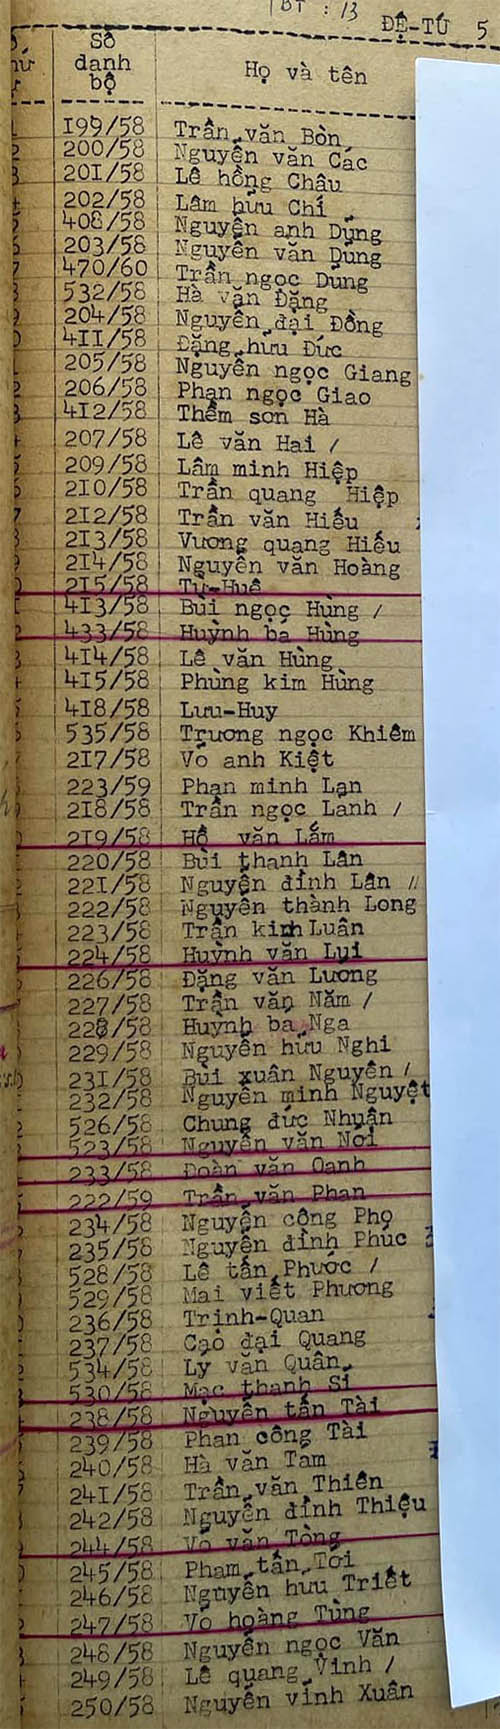 BT : 13
ĐỆ-TỨ 5
Số danh bộ Họ và tên
199/58 Trần văn Bòn
200/58 Nguyễn văn Các
201/58 Lê hồng Châu
202/58 Lâm hữu Chí
408/58 Nguyễn anh Dũng
203/58 Nguyễn văn Dũng
470/60 Trần ngọc Dũng
532/58 Hà văn Đặng
204/58 Nguyễn đại Đồng
411/58 Đặng hữu Đức
205/58 Nguyễn ngọc Giang
206/58 Phan ngọc Giao
412/58 Thềm sơn Hà
207/58 Lê văn Hai /
209/58 Lâm minh Hiệp
210/58 Trần quang Hiệp
212/58 Trần văn Hiếu
213/58 Vương quang Hiếu
214/58 Nguyễn văn Hoàng
215/58 Từ-Huê
413/58 Bùi ngọc Hùng /
433/58 Huỳnh bá Hùng
414/58 Lê văn Hùng
415/58 Phùng kim Hùng
418/58 Lưu-Huy
535/58 Trương ngọc Khiêm
217/58 Võ anh Kiệt
223/59 Phan minh Lan
218/58 Trần ngọc Lanh /
219/58 Hồ văn Lắm
220/58 Bùi thanh Lân
221/58 Nguyễn đình Lân //
222/58 Nguyễn thành Long
223/58 Trần kim Luân
224/58 Huỳnh văn Lụi
226/58 Đặng văn Lương
227/58 Trần văn Năm /
228/58 Huỳnh ba Nga
229/58 Nguyễn hữu Nghi
231/58 Bùi xuân Nguyên /
232/58 Nguyễn minh Nguyệt
526/58 Chung đức Nhuận
523/58 Nguyễn văn Nơi
233/58 Đoàn văn Oanh
222/59 Trần văn Phan
234/58 Nguyễn công Phọ
235/58 Nguyễn đình Phúc
528/58 Lê tấn Phước /
529/58 Mai viết Phương
236/58 Trịnh-Quan
237/58 Cao đại Quang
534/58 Lý văn Quân
530/58 Mạc thanh Sĩ
238/58 Nguyễn tấn Tài
239/58 Phan công Tài
240/58 Hà văn Tám
241/58 Trần văn Thiên
242/58 Nguyễn đình Thiệu
244/58 Võ văn Tòng
245/58 Phạm tấn Tới
246/58 Nguyễn hữu Triết
247/58 Võ hoàng Tùng
248/58 Nguyễn ngọc Văn
249/58 Lê quang Vinh /
250/58 Nguyễn vĩnh Xuân